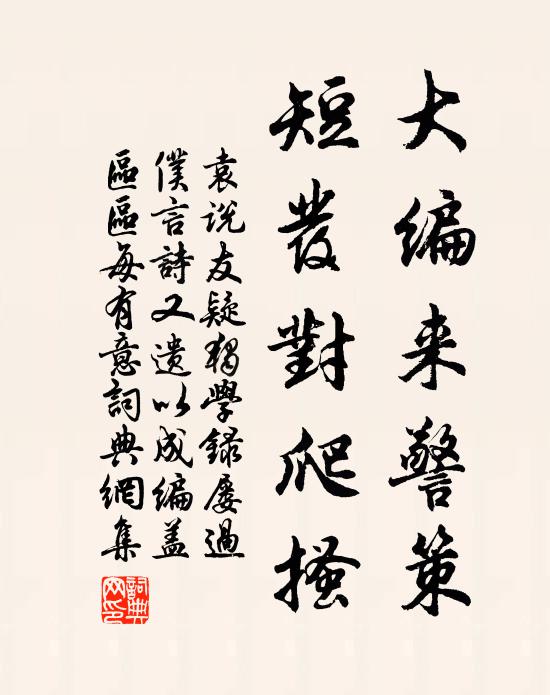 大编来警策
短發對爬搔
袁说友疑獨學録屡過
僕言詩又遗以成编盖
區區每有意詞典網集
詞典網印